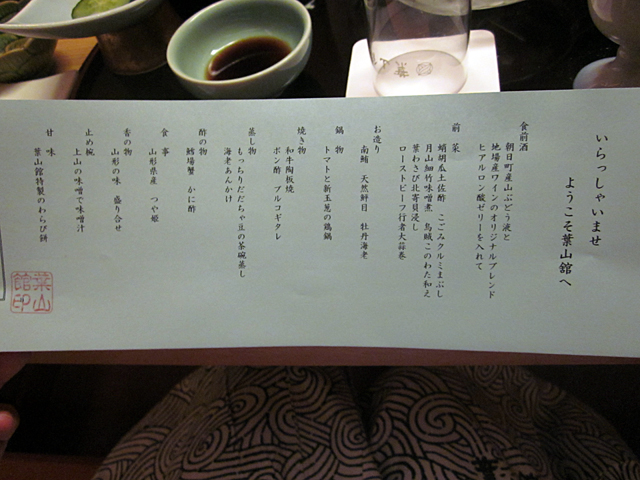 いらっしゃいませ
ようこそ葉山館へ
食前酒
朝日町産山ぶどう液と
地場産ワインのオリジナルブレンド
ヒアルロン酸ゼリーを入れて
前 菜
蛸胡瓜土佐酢 こごみクルミまぶし
月山細竹味噌煮 烏賊このわた和え
葉わさび北寄貝浸し
ローストビーフ行者大蒜巻
お造り
南鮪 天然鮮目 牡丹海老
鍋 物
トマトと新玉葱の鶏鍋
焼き物
和牛陶板焼
ポン酢 プルコギタレ
蒸し物
もっちりだだちゃ豆の茶碗蒸し
海老あんかけ
酢の物
鱈場蟹 かに酢
食 事
山形県産 つや姫
香の物
山形の味 盛り合せ
止め椀
上山の味噌で味噌汁
甘 味
葉山館特製のわらび餅
葉山館印